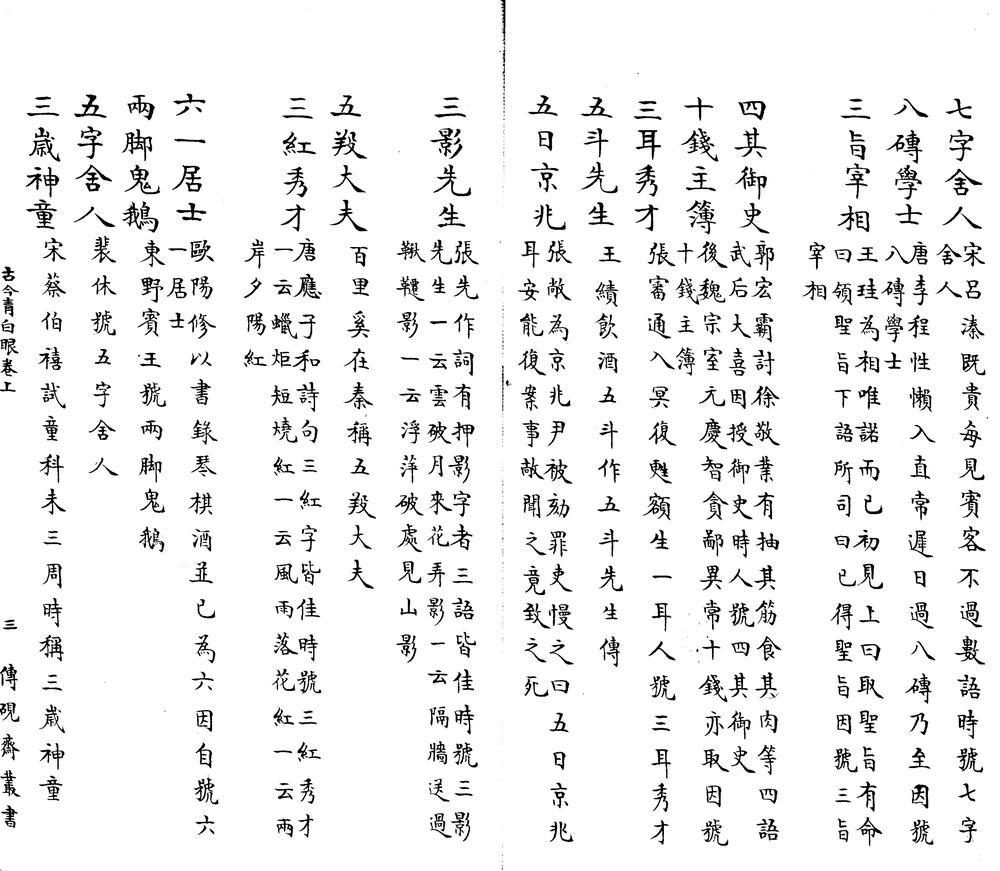 七字舍人宋呂溱既貴每見賓客不過數語時號七字
舍人
八磚學士唐李程性懶入直常遲日過八磚乃至因號
八磚學士
三旨宰相王珪為相唯諾而已初見上曰取聖旨有命
曰領聖旨下語所司曰已得聖旨因號三旨
宰相
四其御史郭宏霸討徐敬業有抽其筋食其肉等四語
武后大喜因授御史時人號四其御史
十錢主簿後魏宗室元慶智貪鄙異常十錢亦取因號
十錢主簿
三耳秀才張審通入冥復甦額生一耳人號三耳秀才
五斗先生王績飲酒五斗作五斗先生傳
五日京兆張敞為京兆尹被劾罪吏慢之曰五日京兆
耳安能復案事敞聞之竟致之死
三影先生張先作詞有押影字者三語皆佳時號三影
先生一云雲破月來花弄影一云隔牆送過
鞦韆影一云浮萍破處見山影
五羖大夫百里奚在秦稱五羖大夫
三紅秀才唐應子和詩句三紅字皆佳時號三紅秀才
一云蠟炬短燒紅一云風雨落花紅一云兩
岸夕陽紅
六一居士歐陽修以書錄琴棋酒並已為六因自號六
一居士
兩脚鬼鵝東野賓王號兩脚鬼鵝
五字舍人裴休號五字舍人
三歲神童宋蔡伯禧試童科未三周時稱三歲神童
古今青白眼卷上
三
傳硯齋叢書